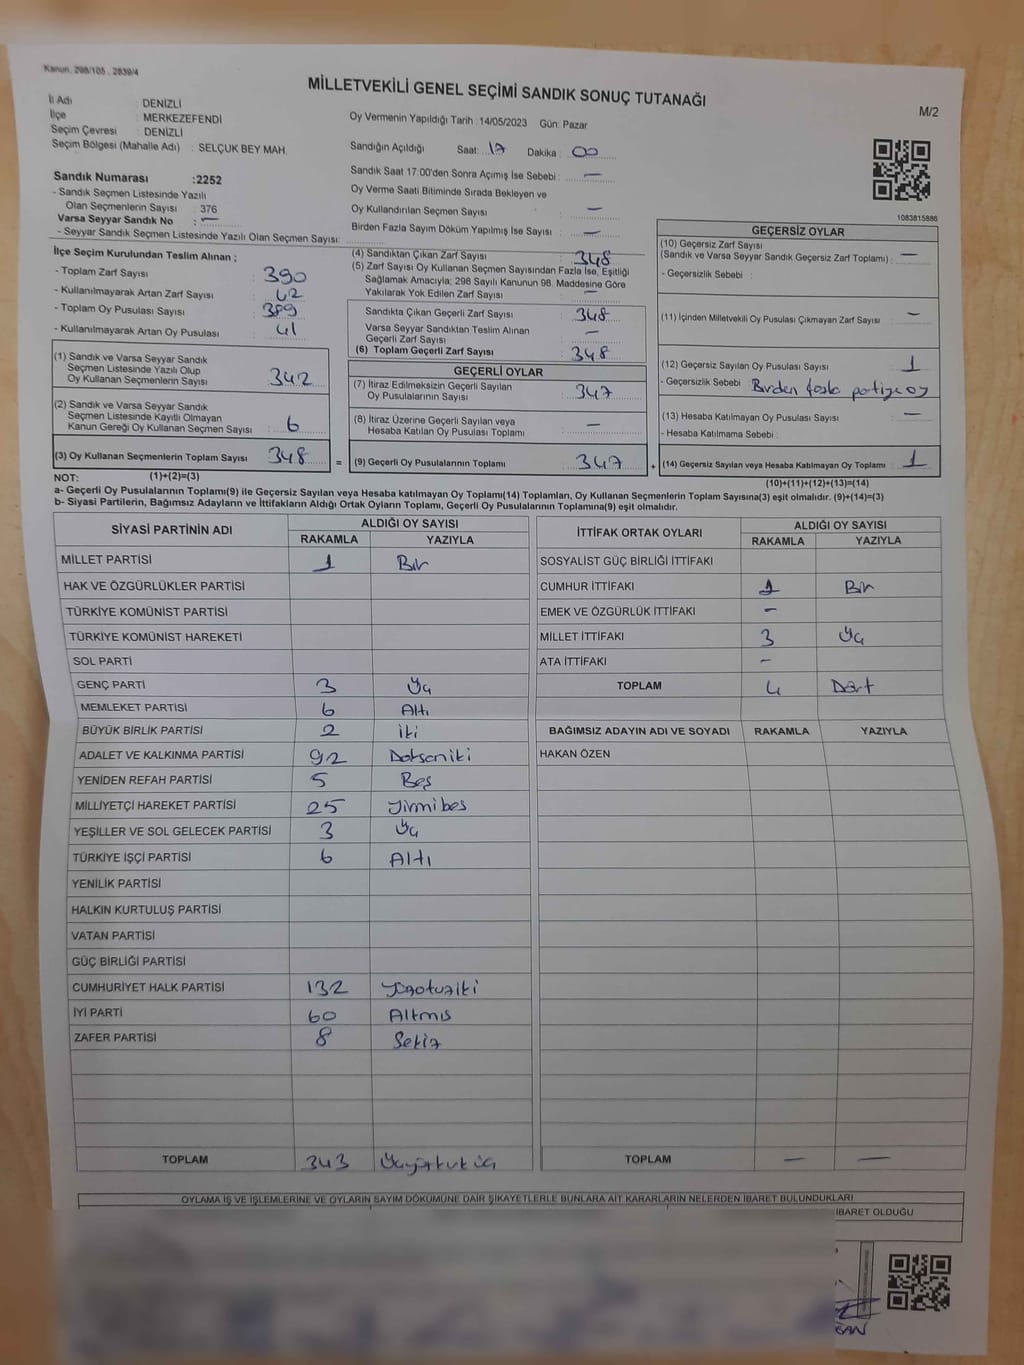 Kanun. 298/105 , 2839/4
MİLLETVEKİLİ GENEL SEÇİMİ SANDIK SONUÇ TUTANAĞI
M/2
İl Adı : DENİZLİ
İlçe : MERKEZEFENDİ
Seçim Çevresi : DENİZLİ
Seçim Bölgesi (Mahalle Adı) : SELÇUK BEY MAH.
Oy Vermenin Yapıldığı Tarih : 14/05/2023 Gün: Pazar
Sandığın Açıldığı Saat: 17 Dakika : 00
Sandık Saat 17:00'den Sonra Açımış İse Sebebi : —
Oy Verme Saati Bitiminde Sırada Bekleyen ve
Oy Kullandırılan Seçmen Sayısı : —
Birden Fazla Sayım Döküm Yapılmış İse Sayısı : —
Sandık Numarası :2252
- Sandık Seçmen Listesinde Yazılı
Olan Seçmenlerin Sayısı : 376
Varsa Seyyar Sandık No : —
- Seyyar Sandık Seçmen Listesinde Yazılı Olan Seçmen Sayısı:
1083815886
İlçe Seçim Kurulundan Teslim Alınan ;
- Toplam Zarf Sayısı : 390
- Kullanılmayarak Artan Zarf Sayısı : 42
- Toplam Oy Pusulası Sayısı : 389
- Kullanılmayarak Artan Oy Pusulası : 41
(1) Sandık ve Varsa Seyyar Sandık
Seçmen Listesinde Yazılı Olup
Oy Kullanan Seçmenlerin Sayısı : 342
(2) Sandık ve Varsa Seyyar Sandık
Seçmen Listesinde Kayıtlı Olmayan
Kanun Gereği Oy Kullanan Seçmen Sayısı : 6
(3) Oy Kullanan Seçmenlerin Toplam Sayısı : 348
(4) Sandıktan Çıkan Zarf Sayısı : 348
(5) Zarf Sayısı Oy Kullanan Seçmen Sayısından Fazla İse, Eşitliği
Sağlamak Amacıyla; 298 Sayılı Kanunun 98. Maddesine Göre
Yakılarak Yok Edilen Zarf Sayısı : —
Sandıkta Çıkan Geçerli Zarf Sayısı : 348
Varsa Seyyar Sandıktan Teslim Alınan
Geçerli Zarf Sayısı : —
(6) Toplam Geçerli Zarf Sayısı : 348
GEÇERLİ OYLAR
(7) İtiraz Edilmeksizin Geçerli Sayılan
Oy Pusulalarının Sayısı : 347
(8) İtiraz Üzerine Geçerli Sayılan veya
Hesaba Katılan Oy Pusulası Toplamı : —
= (9) Geçerli Oy Pusulalarının Toplamı : 347
GEÇERSİZ OYLAR
(10) Geçersiz Zarf Sayısı
(Sandık ve Varsa Seyyar Sandık Geçersiz Zarf Toplamı) : —
- Geçersizlik Sebebi :
(11) İçinden Milletvekili Oy Pusulası Çıkmayan Zarf Sayısı : —
(12) Geçersiz Sayılan Oy Pusulası Sayısı : 1
- Geçersizlik Sebebi : Birden fazla partiye oy
(13) Hesaba Katılmayan Oy Pusulası Sayısı : —
- Hesaba Katılmama Sebebi :
+ (14) Geçersiz Sayılan veya Hesaba Katılmayan Oy Toplamı : 1
NOT: (1)+(2)=(3)
(10)+(11)+(12)+(13)=(14)
a- Geçerli Oy Pusulalarının Toplamı(9) ile Geçersiz Sayılan veya Hesaba katılmayan Oy Toplamı(14) Toplamları, Oy Kullanan Seçmenlerin Toplam Sayısına(3) eşit olmalıdır. (9)+(14)=(3)
b- Siyasi Partilerin, Bağımsız Adayların ve İttifakların Aldığı Ortak Oyların Toplamı, Geçerli Oy Pusulalarının Toplamına(9) eşit olmalıdır.
SİYASİ PARTİNİN ADI ALDIĞI OY SAYISI
RAKAMLA YAZIYLA
MİLLET PARTİSİ 1 Bir
HAK VE ÖZGÜRLÜKLER PARTİSİ
TÜRKİYE KOMÜNİST PARTİSİ
TÜRKİYE KOMÜNİST HAREKETİ
SOL PARTİ
GENÇ PARTİ 3 Üç
MEMLEKET PARTİSİ 6 Altı
BÜYÜK BİRLİK PARTİSİ 2 İki
ADALET VE KALKINMA PARTİSİ 92 Doksaniki
YENİDEN REFAH PARTİSİ 5 Beş
MİLLİYETÇİ HAREKET PARTİSİ 25 Yirmibeş
YEŞİLLER VE SOL GELECEK PARTİSİ 3 Üç
TÜRKİYE İŞÇİ PARTİSİ 6 Altı
YENİLİK PARTİSİ
HALKIN KURTULUŞ PARTİSİ
VATAN PARTİSİ
GÜÇ BİRLİĞİ PARTİSİ
CUMHURİYET HALK PARTİSİ 132 Yüzotuziki
İYİ PARTİ 60 Altmış
ZAFER PARTİSİ 8 Sekiz
TOPLAM 343 Üçyüzkırküç
İTTİFAK ORTAK OYLARI ALDIĞI OY SAYISI
RAKAMLA YAZIYLA
SOSYALİST GÜÇ BİRLİĞİ İTTİFAKI
CUMHUR İTTİFAKI 1 Bir
EMEK VE ÖZGÜRLÜK İTTİFAKI —
MİLLET İTTİFAKI 3 Üç
ATA İTTİFAKI —
TOPLAM 4 Dört
BAĞIMSIZ ADAYIN ADI VE SOYADI RAKAMLA YAZIYLA
HAKAN ÖZEN
TOPLAM — —
OYLAMA İŞ VE İŞLEMLERİNE VE OYLARIN SAYIM DÖKÜMÜNE DAİR ŞİKAYETLERLE BUNLARA AİT KARARLARIN NELERDEN İBARET BULUNDUKLARI
İBARET OLDUĞU